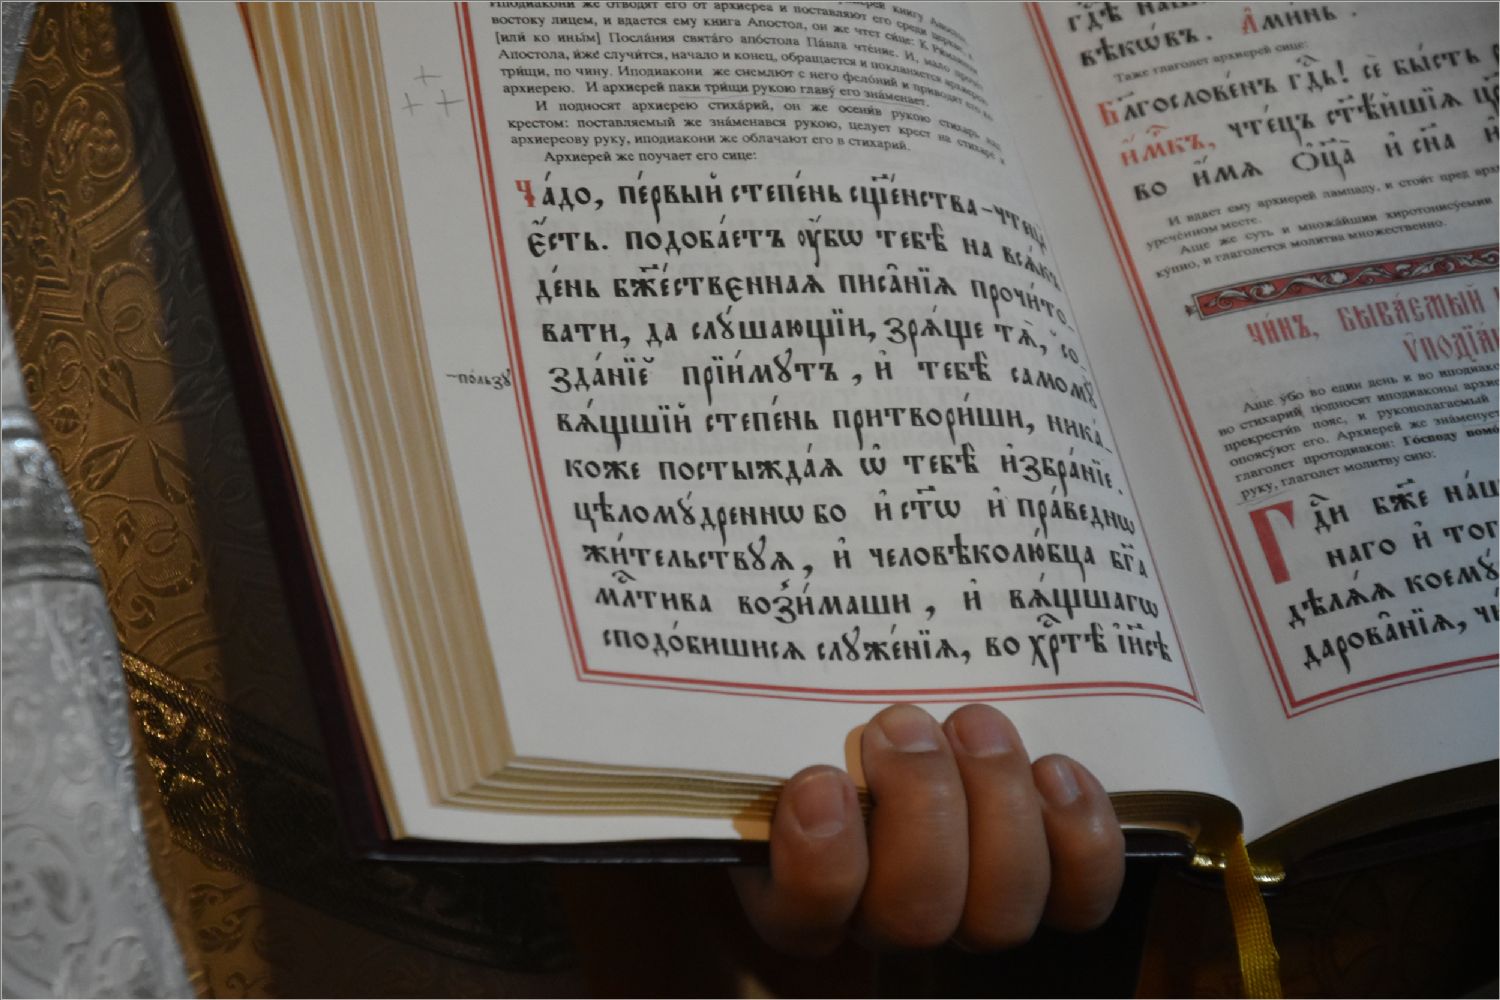 Иподиакони же отводят его от архиерея и поставляют его среди
востоку лицем, и вдается ему книга Апостол, он же чтет си́це:
[или́ ко ины́м] Посла́ния свята́го апо́стола Па́вла чте́ние. И, мало
Апостола, и́же случи́тся, начало и конец, обращается и покланяется
три́щи, по чину. Иподиакони же снемлют с него фело́ний и приводят его
архиерею. И архиерей паки три́щи рукою главу́ его зна́менает.
И подносят архиерею стиха́рий, он же осени́в рукою стихарь
крестом: поставляемый же зна́менався рукою, целует крест на стихаре
архиереову руку, иподиакони же облачают его в стихарий.
Архиерей же поучает его сице:
Ча́до, пе́рвый степе́нь сщ҃е́нства-чтеца̀
є҆́сть. подоба́етъ ᲂу҆́бѡ тебѣ̀ на всѧ́къ
де́нь бж҃е́ственнаѧ писа̑нїѧ прочи́то_
вати, да слꙋ́шающїи, зрѧ́ще тѧ̀, со_
зда́нїе прїи́мꙋтъ, и҆ тебѣ̀ самомꙋ̀
~по́льзꙋ
вѧ́щшїй степе́нь притвори́ши, ника́_
коже постыжда́ѧ ѡ҆ тебѣ̀ и҆збра́нїе.
цѣломꙋ́дреннѡ бо и҆ ст҃ѡ и҆ пра́веднѡ
жи́тельствꙋѧ, и҆ человѣколю́бца бг҃а
млⷭ҇тива воз̾и́маши, и҆ вѧ́щшагѡ
сподо́бишисѧ слꙋже́нїѧ, во хрⷭ҇тѣ̀ і҆и҃сѣ
гдⷭ҇ѣ
вѣкѡ́въ. А҆ми́нь.
Таже глаголет архиерей сице:
Бл҃гослове́нъ гдⷭ҇ь! сѐ бы́сть
и҆́мкъ, чте́цъ ст҃ѣ́йшїѧ
во и҆́мѧ ѻ҆ц҃а̀ и҆ сн҃а
И вдает ему архиерей лампаду, и стои́т пред
урече́нном месте.
Аще же суть и множа́йшии хиротонису́емии
ку́пно, и глаголется молитва множественно.
чи́нъ, быва́емый
Аще у́бо во един день и во
во стихарий, подносят иподиаконы
прекрести́в пояс, и рукополагаемый
опоясу́ют его. Архиерей же зна́менует
глаголет протодиакон: Го́споду
руку, глаголет молитву сию:
Гдⷭ҇и бж҃е на́ш
наго и҆ тог
дѣ́лѧѧ коемꙋ́
дарова̑нїѧ,